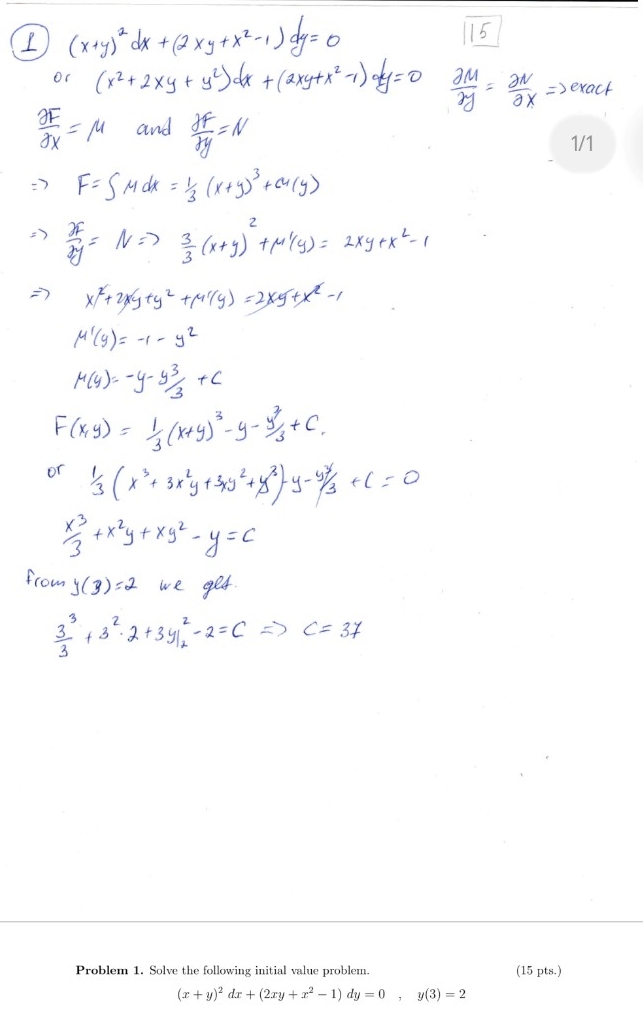 ① (x+y)² dx + (2xy + x² - 1) dy = 0
15
or (x² + 2xy + y²) dx + (2xy + x² - 1) dy = 0 ∂M/∂y = ∂N/∂x => exact
∂F/∂x = M and ∂F/∂y = N
1/1
=> F = ∫M dx = 1/3 (x+y)³ + μ(y)
=> ∂F/∂y = N => 3/3 (x+y)² + μ'(y) = 2xy + x² - 1
=> x² + 2xy + y² + μ'(y) = 2xy + x² - 1
μ'(y) = -1 - y²
μ(y) = -y - y³/3 + C
F(x,y) = 1/3 (x+y)³ - y - y³/3 + C.
or 1/3 (x³ + 3x²y + 3xy² + y³) - y - y³/3 + C = 0
x³/3 + x²y + xy² - y = C
from y(3) = 2 we get.
3³/3 + 3²·2 + 3y|²₂ - 2 = C => C = 37
Problem 1. Solve the following initial value problem. (15 pts.)
(x + y)² dx + (2xy + x² − 1) dy = 0 , y(3) = 2